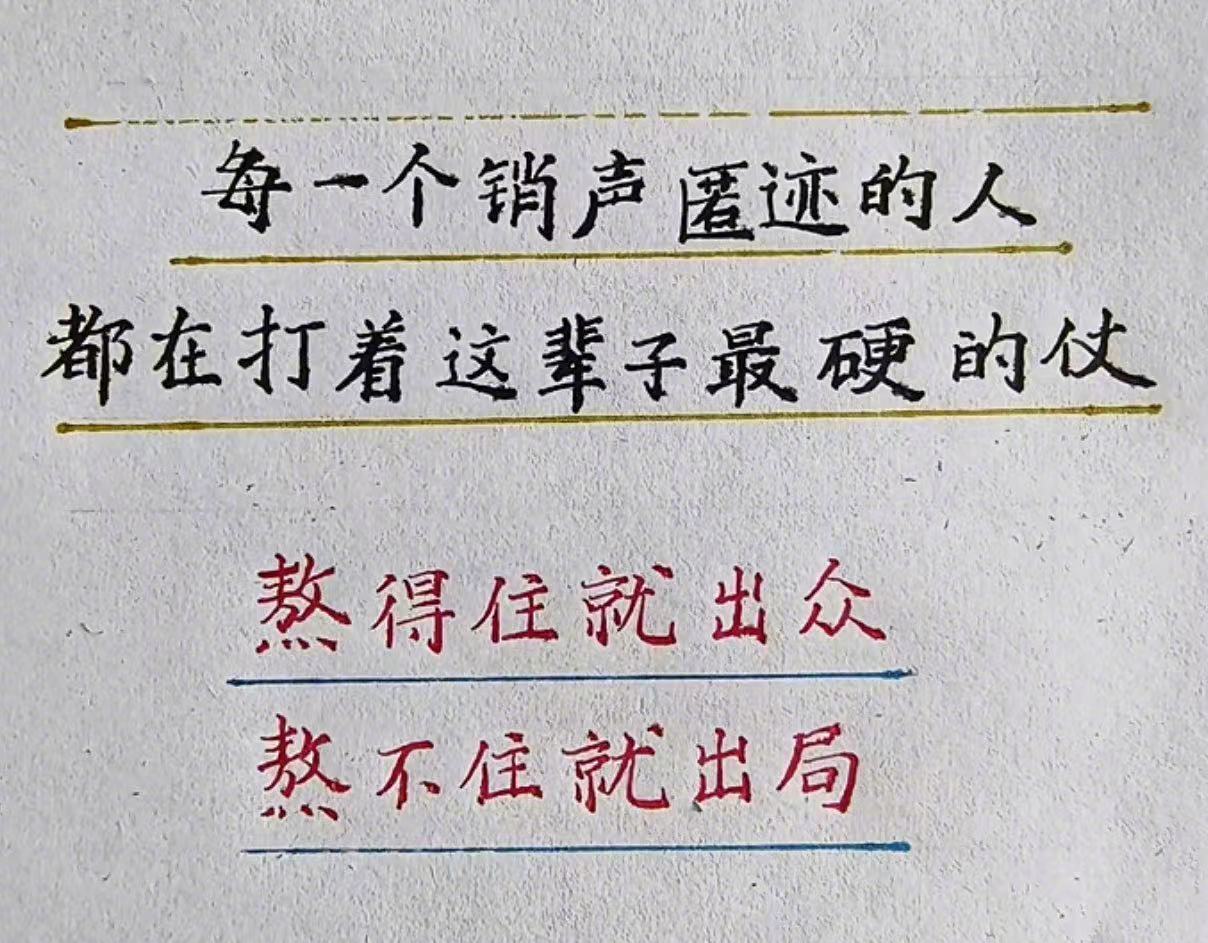 每一个销声匿迹的人
都在打着这辈子最硬的仗
熬得住就出众
熬不住就出局